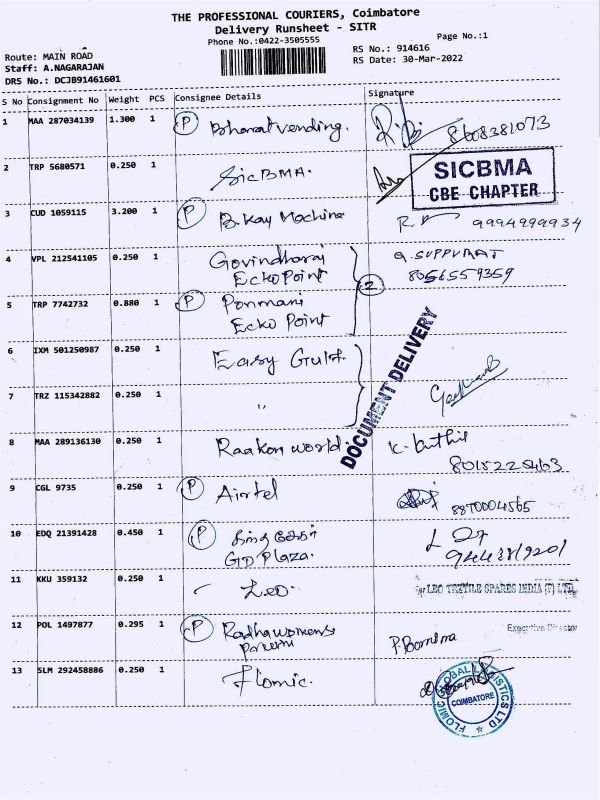 THE PROFESSIONAL COURIERS, Coimbatore
Delivery Runsheet - SITR
Phone No.:0422-3505555
Page No.:1
Route: MAIN ROAD
RS No.: 914616
Staff: A.NAGARAJAN
RS Date: 30-Mar-2022
DRS No.: DCJB91461601
S No Consignment No Weight PCS Consignee Details Signature
1 MAA 287034139 1.300 1 P Bharat vending. 8608381073
2 TRP 5680571 0.250 1 SicBMA.
SICBMA
CBE CHAPTER
3 CUD 1059115 3.200 1 P B.Kay Machine 9994999934
4 VPL 212541105 0.250 1 Govindharaj
Ecko Point 8056559359
2
5 TRP 7742732 0.880 1 P Ponmani
Ecko Point
DOCUMENT DELIVERY
6 IXM 501250987 0.250 1 Easy Gulf.
7 TRZ 115342882 0.250 1 "
8 MAA 289136130 0.250 1 Raakon world.
9 CGL 9735 0.250 1 P Airtel 8870004565
10 EDQ 21391428 0.450 1 P
GD Plaza.
11 KKU 359132 0.250 1 Leo.
For LEO TEXTILE SPARES INDIA (P) LTD.
Executive Director
12 POL 1497877 0.295 1 P Radha womens
13 SLM 292458886 0.250 1 Flomic.
FLOMIC GLOBAL LOGISTICS LTD
COIMBATORE